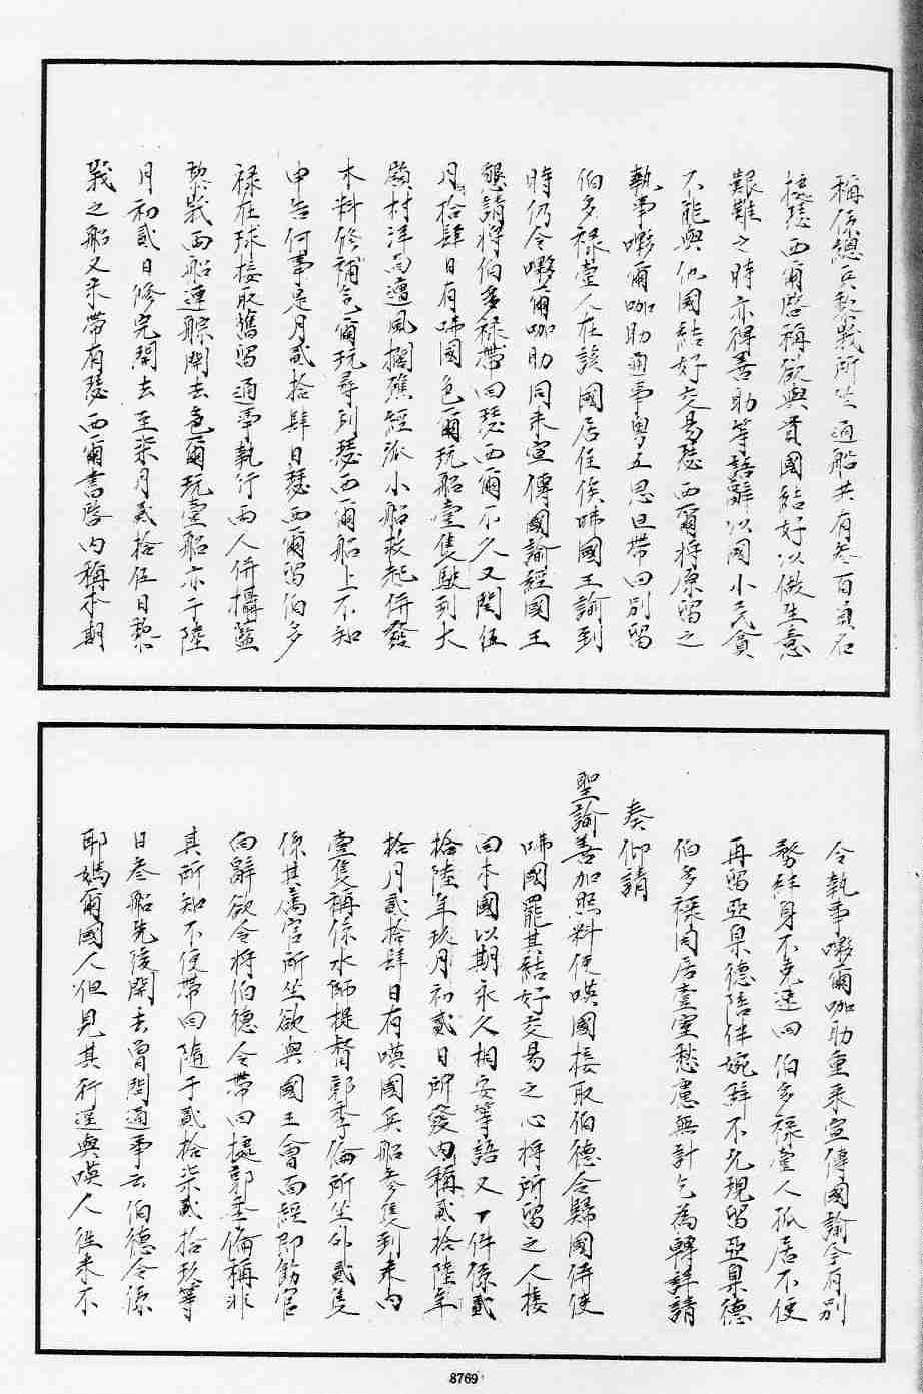 稱係總兵黎峩所坐通船共有叁百員名
據瑟西爾啓稱欲與貴國結好以做生意
艱難之時亦得善助等語辭以國小民貧
不能與他國結好交易瑟西爾將原留之
執事嘞爾咖助通事粵五思旦帶回別留
伯多祿壹人在該國居住俟咈國王諭到
時仍令嘞爾咖助同來宣傳國諭經國王
懇請將伯多祿帶回瑟西爾不久又閏伍
月拾肆日有咈國色爾玩船壹隻駛到大
嶺村洋面遭風擱礁經派小船救起併發
木料修補色爾玩尋到瑟西爾船上不知
申告何事是月貳拾肆日瑟西爾留伯多
祿在球接取舊留通事執行兩人併攝藍
黎峩兩船連䑸開去色爾玩壹船亦于陸
月初貳日修完開去至柒月貳拾伍日黎
峩之船又來帶有瑟西爾書啓內稱本期
令執事嘞爾咖助重來宣傳國諭今有別
務絆身不克速回伯多祿壹人孤居不便
再留亞臬德陪伴婉辭不允現留亞臬德
伯多祿同居壹室愁慮無計乞為轉詳請
奏仰請
聖諭善加照料使㖛國接取伯德令歸國併使
咈國罷其結好交易之心將所留之人接
回本國以期永久相安等語又一件係貳
拾陸年玖月初貳日所發內稱貳拾陸年
拾月貳拾肆日有㖛國兵船叁隻到來內
壹隻稱係水師提督郭季倫所坐外貳隻
係其屬官所坐欲與國王會面經即飭官
向辭欲令將伯德令帶回據郭季倫稱非
其所知不便帶回隨于貳拾柒貳拾玖等
日叁船先後開去曾問通事云伯德令係
耶媽爾國人但見其行逕與㖛人往來不
8769